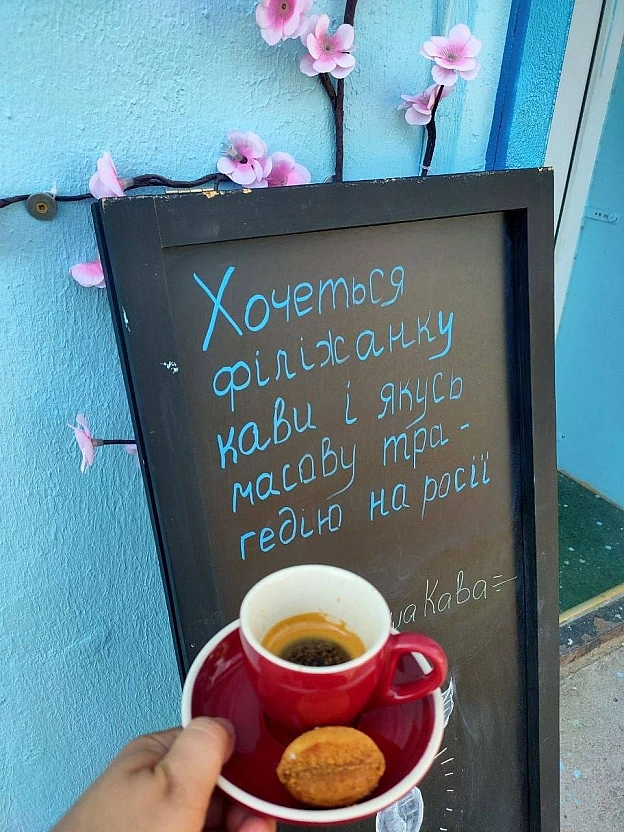 Хочеться
філіжанку
кави і якусь
масову тра-
гедію на росії
Кава=